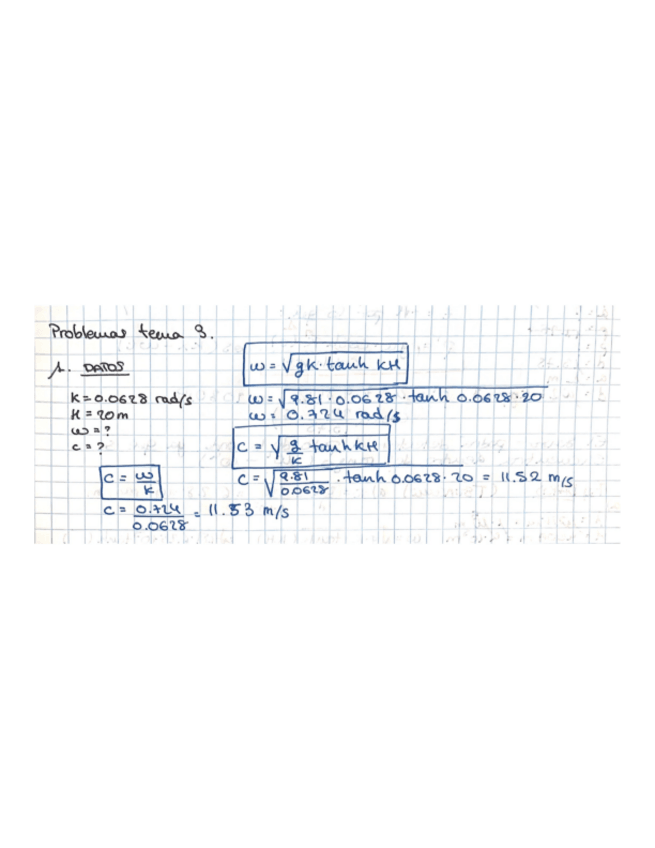 Problemas tema 3.
1. DATOS
K = 0.0628 rad/s
H = 20 m
ω = ?
c = ?
ω = √gk · tanh KH
ω = √9.81 · 0.0628 · tanh 0.0628 · 20
ω = 0.724 rad/s
C = √g/K tanh KH
C = √9.81/0.0628 · tanh 0.0628 · 20 = 11.52 m/s
C = ω/K
C = 0.724/0.0628 = 11.53 m/s